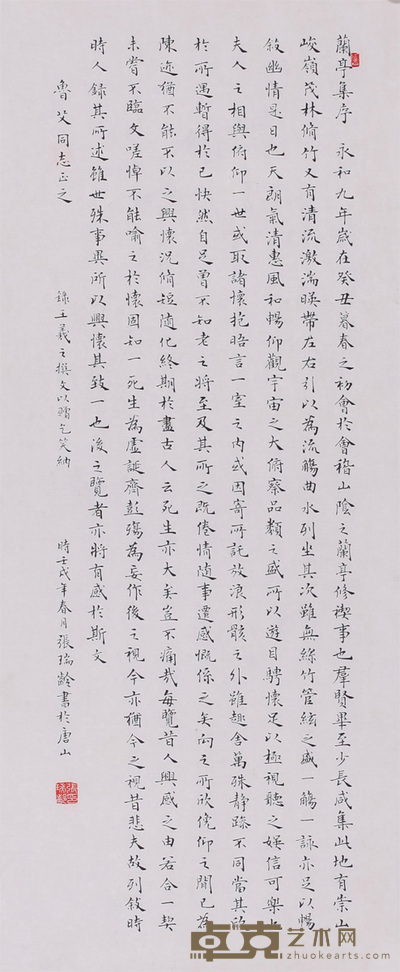 蘭亭集序 永和九年歲在癸丑暮春之初會於會稽山陰之蘭亭修禊事也羣賢畢至少長咸集此地有崇山
峻嶺茂林脩竹又有清流激湍暎帶左右引以為流觴曲水列坐其次雖無絲竹管絃之盛一觴一詠亦足以暢
敘幽情是日也天朗氣清惠風和暢仰觀宇宙之大俯察品類之盛所以遊目騁懷足以極視聽之娛信可樂也
夫人之相與俯仰一世或取諸懷抱晤言一室之內或因寄所託放浪形骸之外雖趣舍萬殊靜躁不同當其欣
於所遇暫得於己快然自足曾不知老之將至及其所之既倦情隨事遷感慨係之矣向之所欣俛仰之間已為
陳迹猶不能不以之興懷況脩短隨化終期於盡古人云死生亦大矣豈不痛哉每覽昔人興感之由若合一契
未嘗不臨文嗟悼不能喻之於懷固知一死生為虛誕齊彭殤為妄作後之視今亦猶今之視昔悲夫故列敘時
時人錄其所述雖世殊事異所以興懷其致一也後之覽者亦將有感於斯文
魯艾同志正之
錄王羲之撰文以贈乞笑納
時壬戌年春月張瑞齡書於唐山
卓克艺术网
zhuokearts.com